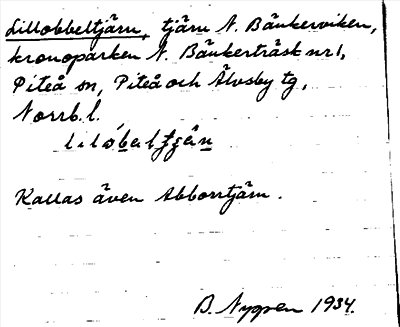 Lillobbeltjärn, tjärn N. Bänkerviken,
kronoparken N. Bänkerträsk nr 1,
Piteå sn, Piteå och Älvsby tg,
Norrb. l.
Kallas även Abborrtjärn.
B. Nygren 1934.